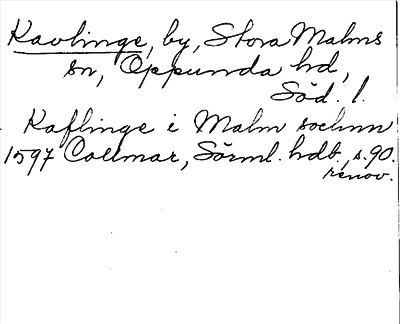 Kavlinge, by, Stora Malms
sn, Oppunda hd,
Söd. l.
Kaflinge i Malm sochnn
1597 Collmar, Sörml. hdb., s. 90.
renov.